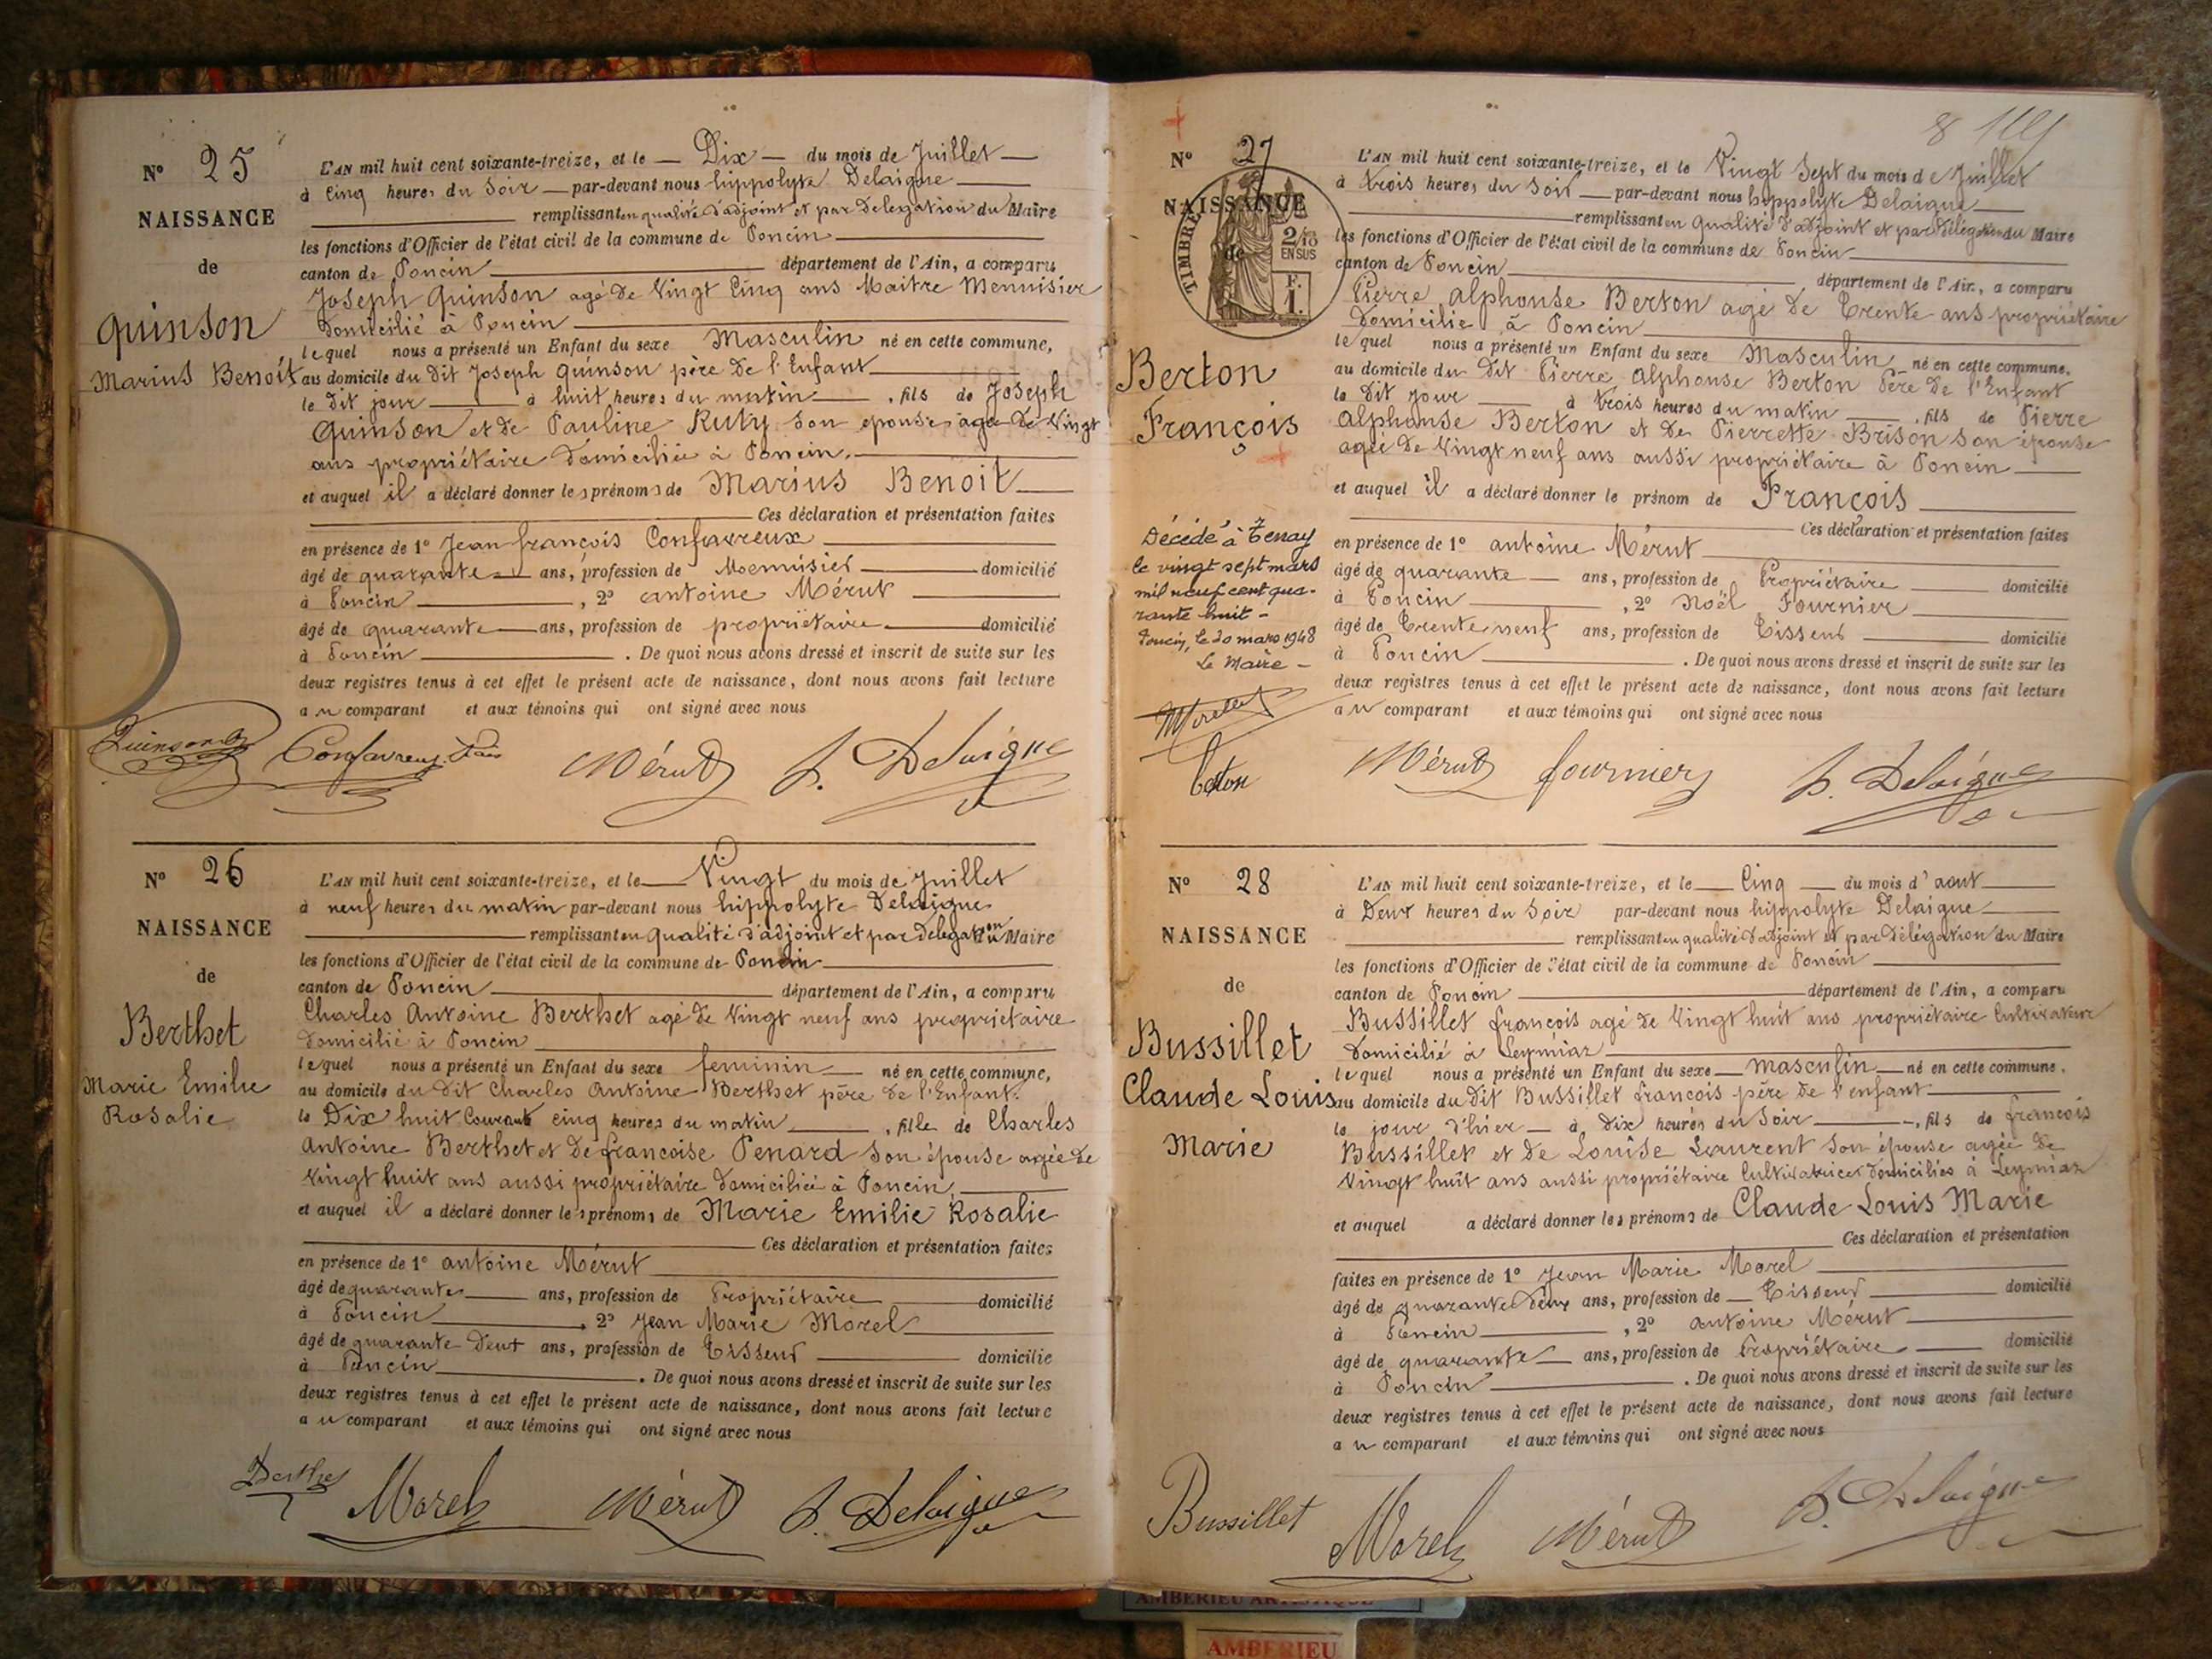 N° 25
NAISSANCE
de
Quinson
Marius Benoit
L'AN mil huit cent soixante-treize, et le Dix du mois de Juillet
à Cinq heures du Soir par-devant nous hippolyte Delaigue
remplissant en qualité d'adjoint et par Delegation du Maire
les fonctions d'Officier de l'état civil de la commune de Poncin
canton de Poncin département de l'Ain, a comparu
Joseph Quinson agé de Vingt Cinq ans Maitre Menuisier
Domicilié à Poncin
lequel nous a présenté un Enfant du sexe Masculin né en cette commune,
au domicile du dit Joseph Quinson père de l'Enfant
le dit jour à huit heures du matin, fils de Joseph
Quinson et de Pauline Ruty son epouse agée de Vingt
ans propriétaire Domiciliée à Poncin.
et auquel il a déclaré donner les prénoms de Marius Benoit
Ces déclaration et présentation faites
en présence de 1° Jean françois Confavreux
âgé de quarante ans, profession de Menuisier domicilié
à Poncin, 2° antoine Mérut
âgé de quarante ans, profession de propriétaire domicilié
à Poncin. De quoi nous avons dressé et inscrit de suite sur les
deux registres tenus à cet effet le présent acte de naissance, dont nous avons fait lecture
au comparant et aux témoins qui ont signé avec nous
Quinson Confavreux Mérut h. Delaigue
N° 26
NAISSANCE
de
Berthet
Marie Emilie
Rosalie
L'AN mil huit cent soixante-treize, et le Vingt du mois de Juillet
à neuf heures du matin par-devant nous hippolyte Delaigue
remplissant en qualité d'adjoint et par délégation du Maire
les fonctions d'Officier de l'état civil de la commune de Poncin
canton de Poncin département de l'Ain, a comparu
Charles Antoine Berthet agé de Vingt neuf ans propriétaire
domicilié à Poncin
lequel nous a présenté un Enfant du sexe feminin né en cette commune,
au domicile du dit Charles Antoine Berthet père de l'Enfant.
le Dix huit Courant cinq heures du matin, fille de Charles
Antoine Berthet et de francoise Penard son épouse agée de
Vingt huit ans aussi propriétaire domiciliée à Poncin,
et auquel il a déclaré donner les prénoms de Marie Emilie Rosalie
Ces déclaration et présentation faites
en présence de 1° antoine Mérut
âgé de quarante ans, profession de Propriétaire domicilié
à Poncin, 2° Jean Marie Morel
âgé de quarante Deux ans, profession de Tisseur domicilié
à Poncin. De quoi nous avons dressé et inscrit de suite sur les
deux registres tenus à cet effet le présent acte de naissance, dont nous avons fait lecture
au comparant et aux témoins qui ont signé avec nous
Berthet Morel Mérut h. Delaigue
N° 27
NAISSANCE
de
TIMBRE
2/10
EN SUS
F.
1.
Berton
François
Décédé à Tenay
le vingt sept mars
mil neuf cent qua-
rante huit -
Poncin, le 30 mars 1948
Le Maire -
L'AN mil huit cent soixante-treize, et le Vingt Sept du mois de Juillet
à trois heures du Soir par-devant nous hippolyte Delaigue
remplissant en Qualité d'adjoint et par délégation du Maire
les fonctions d'Officier de l'état civil de la commune de Poncin
canton de Poncin département de l'Ain, a comparu
Pierre Alphonse Berton agé de Trente ans propriétaire
domicilié à Poncin
lequel nous a présenté un Enfant du sexe Masculin né en cette commune.
au domicile du dit Pierre Alphonse Berton Père de l'Enfant
le dit jour à trois heures du matin, fils de Pierre
Alphonse Berton et de Pierrette Brison son épouse
agée de Vingt neuf ans aussi propriétaire à Poncin
et auquel il a déclaré donner le prénom de François
Ces déclaration et présentation faites
en présence de 1° antoine Mérut
âgé de quarante ans, profession de Propriétaire domicilié
à Poncin, 2° Noël Fournier
âgé de Trente neuf ans, profession de Tisseur domicilié
à Poncin. De quoi nous avons dressé et inscrit de suite sur les
deux registres tenus à cet effet le présent acte de naissance, dont nous avons fait lecture
au comparant et aux témoins qui ont signé avec nous
Berton Mérut fournier h. Delaigue
N° 28
NAISSANCE
de
Bussillet
Claude Louis
Marie
L'AN mil huit cent soixante-treize, et le Cinq du mois d'aout
à Deux heures du Soir par-devant nous hippolyte Delaigue
remplissant en qualité d'adjoint et par délégation du Maire
les fonctions d'Officier de l'état civil de la commune de Poncin
canton de Poncin département de l'Ain, a comparu
Bussillet françois agé de Vingt huit ans propriétaire Cultivateur
domicilié à Leymiaz
lequel nous a présenté un Enfant du sexe masculin né en cette commune.
au domicile du dit Bussillet francois père de l'enfant
le jour d'hier à Dix heures du Soir, fils de francois
Bussillet et de Louise Laurent son épouse agée de
Vingt huit ans aussi propriétaire Cultivatrice domiciliés à Leymiaz
et auquel a déclaré donner les prénoms de Claude Louis Marie
Ces déclaration et présentation
faites en présence de 1° Jean Marie Morel
âgé de quarante deux ans, profession de Tisseur domicilié
à Poncin, 2° antoine Mérut
âgé de quarante ans, profession de Propriétaire domicilié
à Poncin. De quoi nous avons dressé et inscrit de suite sur les
deux registres tenus à cet effet le présent acte de naissance, dont nous avons fait lecture
au comparant et aux témoins qui ont signé avec nous
Bussillet Morel Mérut h. Delaigue
AMBERIEU ARTISTIQUE
AMBERIEU